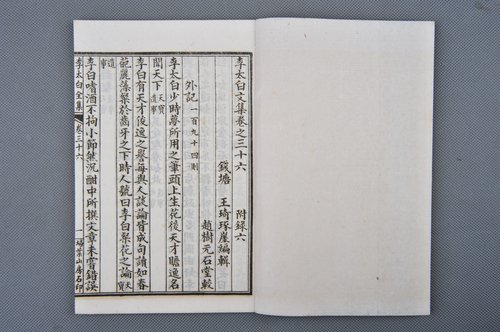 李太白文集卷之三十六
附錄六
錢塘 王琦琢崖編輯
趙樹元石堂較
外記 一百九十四則
李太白少時夢所用之筆頭上生花後天才贍逸名
聞天下 天寶遺事
李白有天才俊逸之譽每與人談論皆成句讀如春
葩麗藻粲於齒牙之下時人號曰李白粲花之論 天寶
遺事
李白嗜酒不拘小節然沉酣中所撰文章未嘗錯誤
李太白全集 卷三十六 一 埽葉山房石印